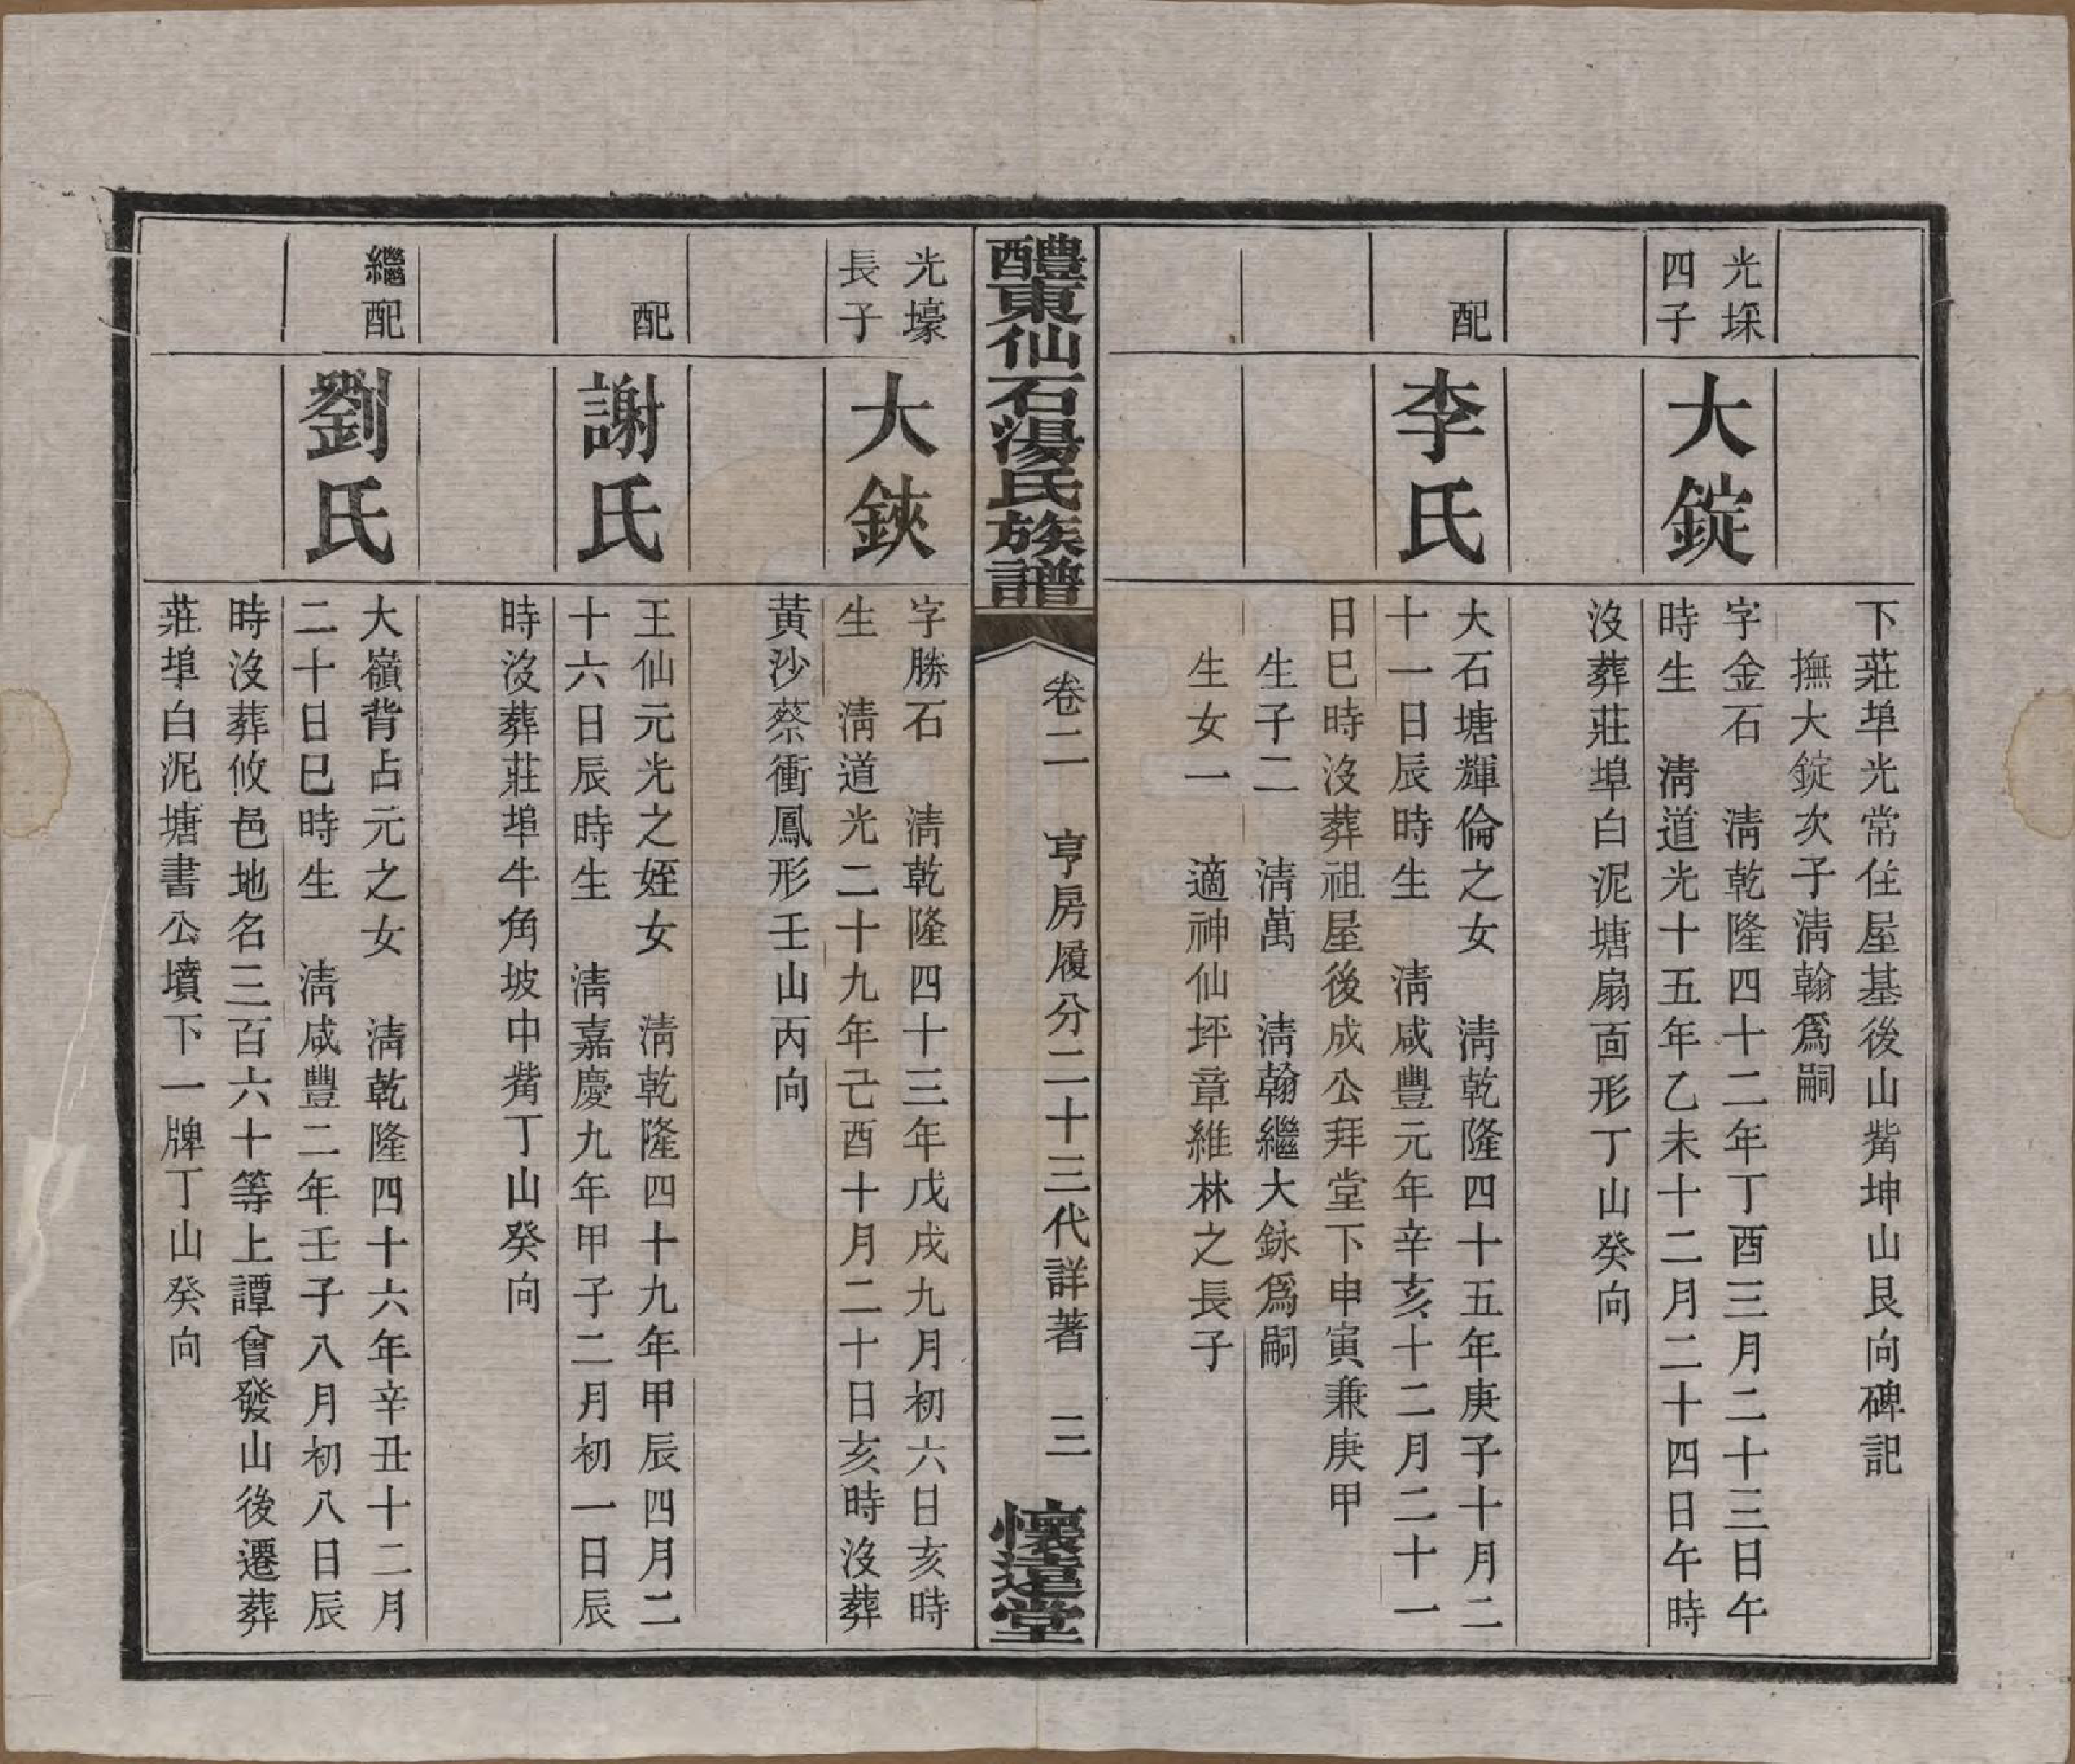 下莊埠光常住屋基後山觜坤山艮向碑記
撫大錠次子清翰爲嗣
光埰
四子
大錠
字金石 清乾隆四十二年丁酉三月二十三日午
時生 清道光十五年乙未十二月二十四日午時
沒葬莊埠白泥塘扇面形丁山癸向
配
李氏
大石塘輝倫之女 清乾隆四十五年庚子十月二
十一日辰時生 清咸豐元年辛亥十二月二十一
日巳時沒葬祖屋後成公拜堂下申寅兼庚甲
生子二 清萬 清翰繼大銾爲嗣
生女一 適神仙坪章維林之長子
醴東仙石湯氏族譜
卷二 亨房履分二十三代詳著 三
懷遠堂
光壕
長子
大鋏
字勝石 清乾隆四十三年戊戌九月初六日亥時
生 清道光二十九年己酉十月二十日亥時沒葬
黃沙蔡衝鳳形壬山丙向
配
謝氏
王仙元光之姪女 清乾隆四十九年甲辰四月二
十六日辰時生 清嘉慶九年甲子二月初一日辰
時沒葬莊埠牛角坡中觜丁山癸向
繼配
劉氏
大嶺背占元之女 清乾隆四十六年辛丑十二月
二十日巳時生 清咸豐二年壬子八月初八日辰
時沒葬攸邑地名三百六十等上譚曾發山後遷葬
莊埠白泥塘書公墳下一牌丁山癸向